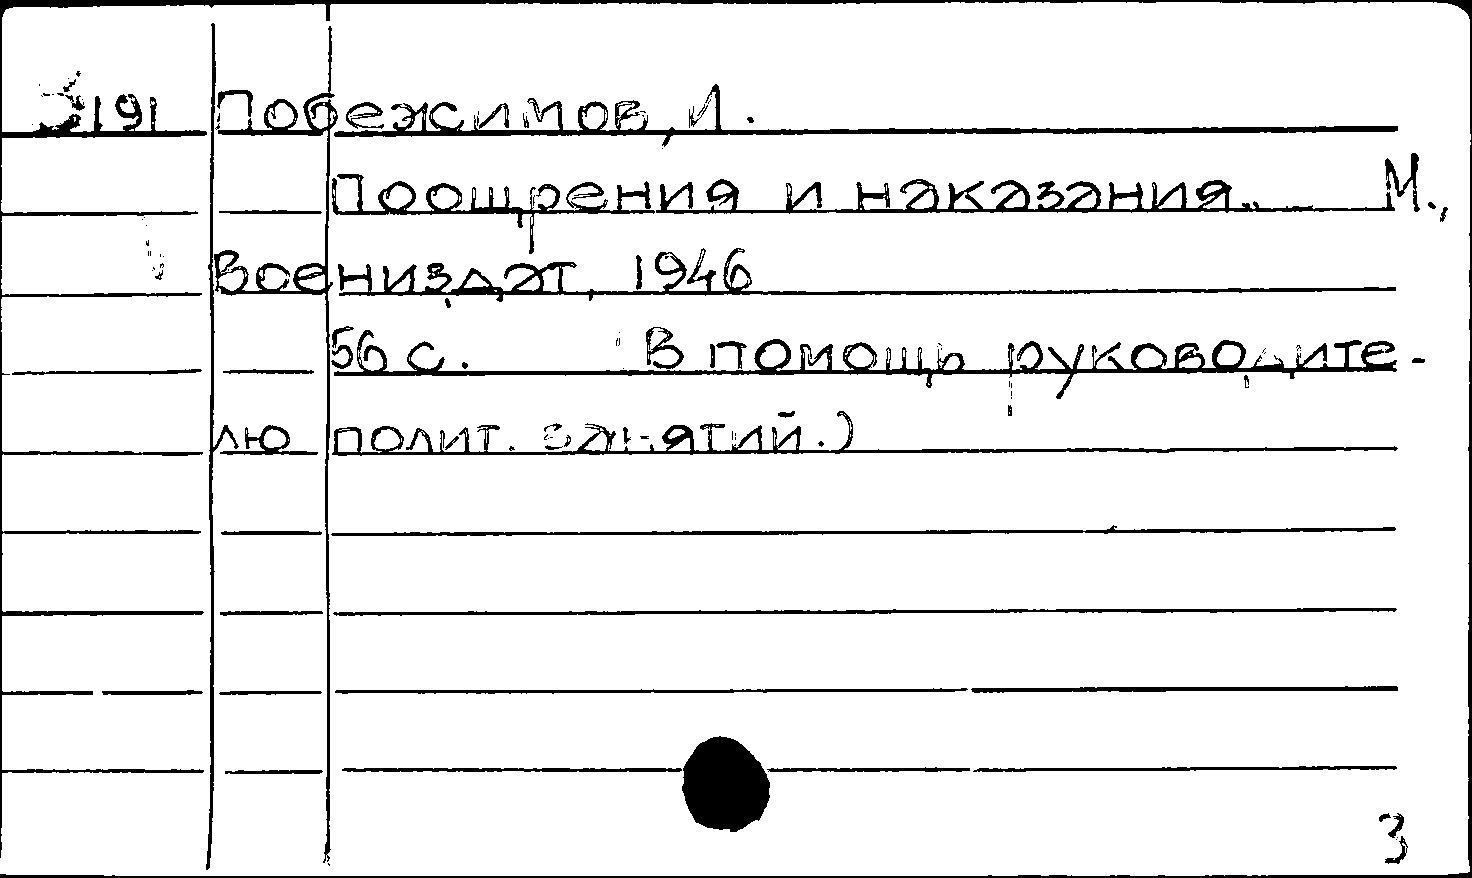 З191 Побежимов, И.
Поощрения и наказания. М.,
Воениздат, 1946
56 с. В помощь руководите-
лю полит. занятий.)
3